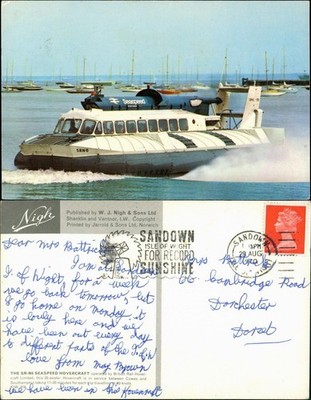 Seaspeed
Nigh
Published by W. J. Nigh & Sons Ltd
Shanklin and Ventnor, I.W. Copyright
Printed by Jarrold & Sons Ltd, Norwich
SANDOWN
ISLE OF WIGHT
FOR RECORD
SUNSHINE
SANDOWN
PM
29 AUG
Dear Mrs
I am
I of Wight for a week
we go back tomorrow but
I go home on monday it
is lovely here and we
have been out every day
to different parts of the I of W
love from may
we have been in this Hovercraft
Mrs
Cambridge Road
Dorchester
Dorset
THE SR-N6 SEASPEED HOVERCRAFT